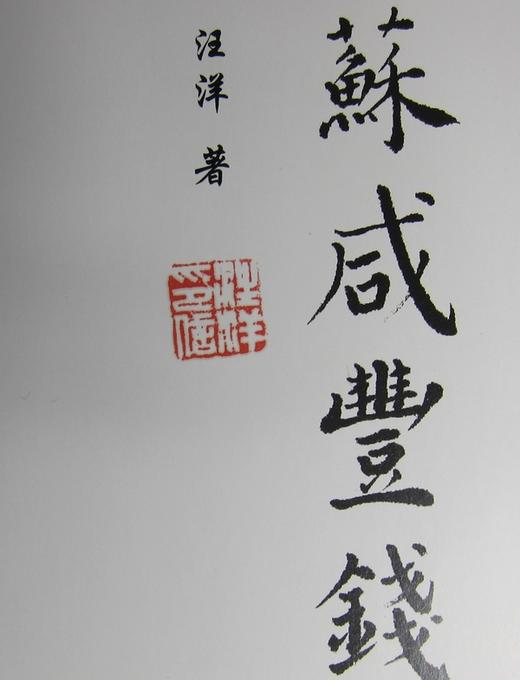 蘇咸豐錢
汪洋 著
汪洋印信